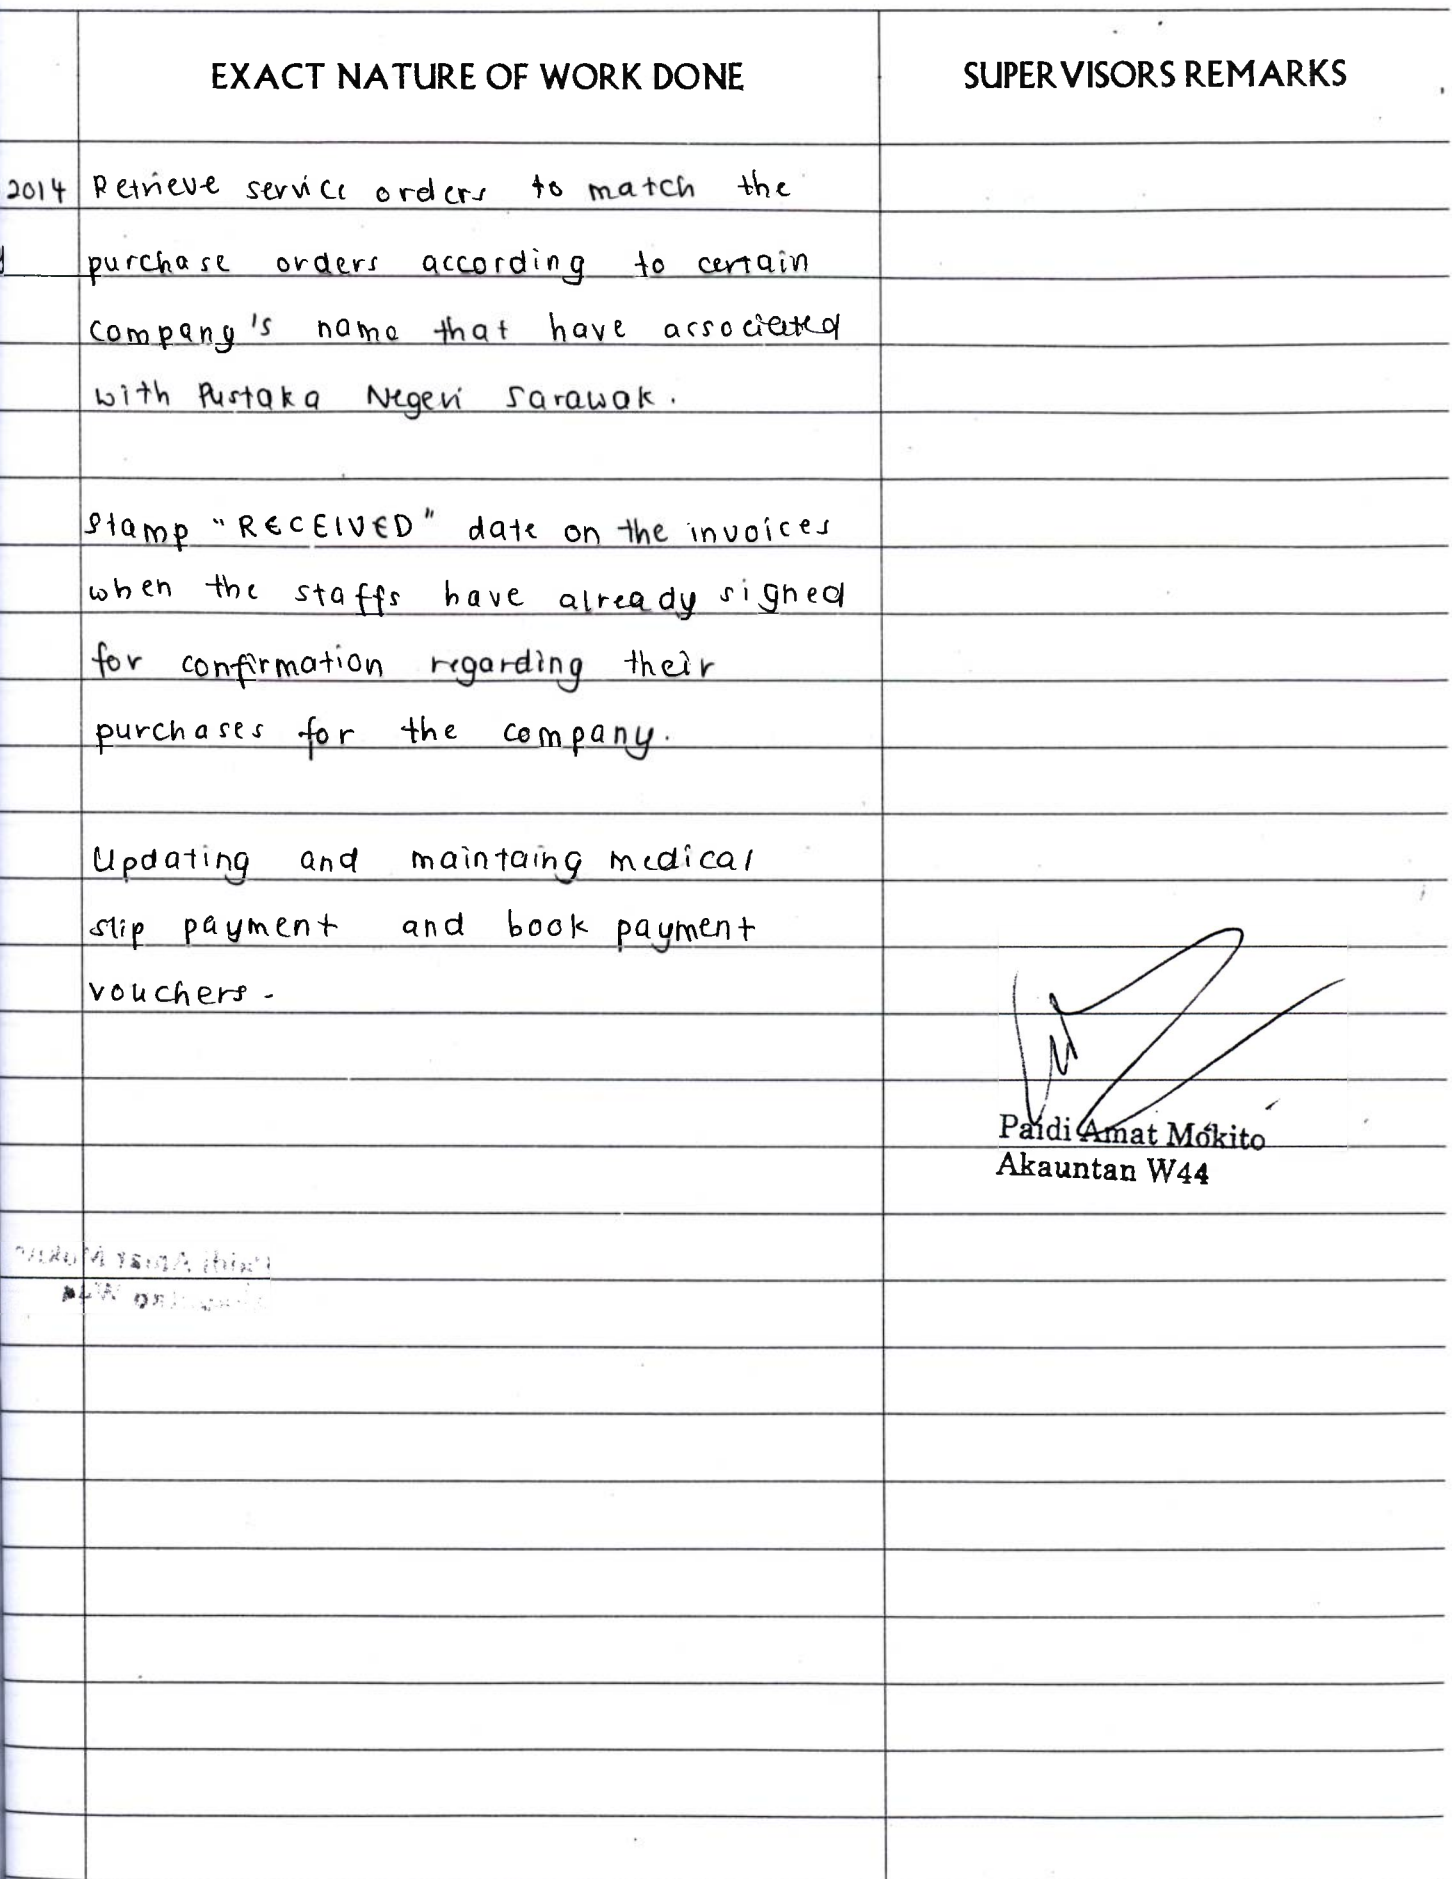 EXACT NATURE OF WORK DONE
SUPERVISORS REMARKS
2014 Retrieve service orders to match the
purchase orders according to certain
company's name that have associated
with Pustaka Negeri Sarawak.
Stamp "RECEIVED" date on the invoices
when the staffs have already signed
for confirmation regarding their
purchases for the company.
Updating and maintaing medical
slip payment and book payment
vouchers.
Paidi Amat Mokito
Akauntan W44